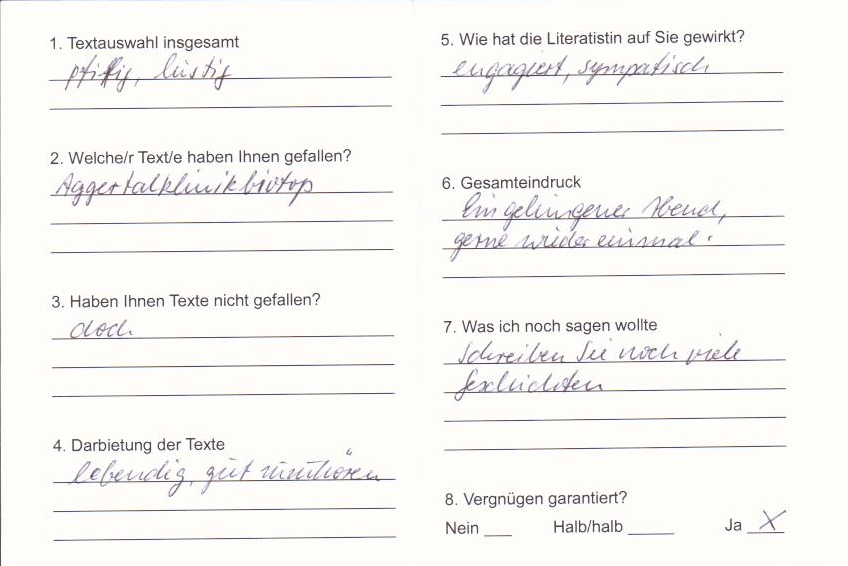 1. Textauswahl insgesamt
pfiffig, lustig
2. Welche/r Text/e haben Ihnen gefallen?
Aggertalklinikbiotop
3. Haben Ihnen Texte nicht gefallen?
doch
4. Darbietung der Texte
lebendig, gut zuzuhören
5. Wie hat die Literatistin auf Sie gewirkt?
engagiert, sympatisch
6. Gesamteindruck
Ein gelungener Abend,
gerne wieder einmal.
7. Was ich noch sagen wollte
Schreiben Sie noch viele
Geschichten
8. Vergnügen garantiert?
Nein ___ Halb/halb _____ Ja X